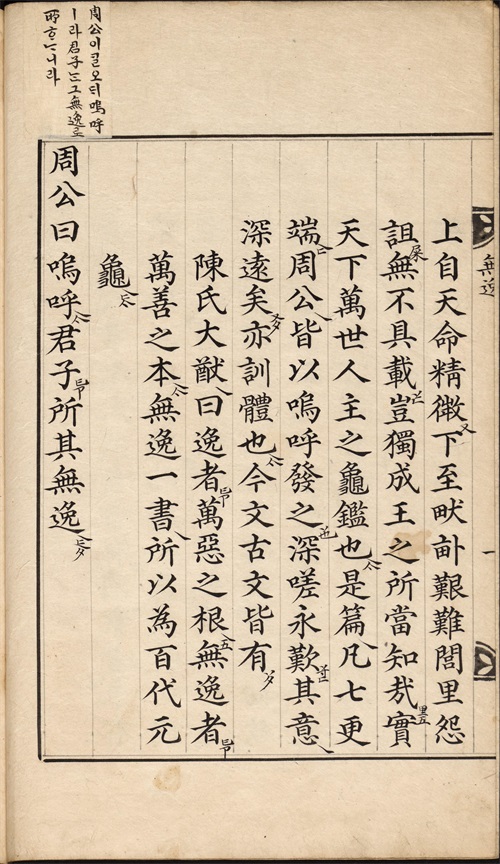 無逸
一
上自天命精微下至畎畝艱難閭里怨
詛無不具載豈獨成王之所當知哉實
天下萬世人主之龜鑑也是篇凡七更
端周公皆以嗚呼發之深嗟永歎其意
深遠矣亦訓體也今文古文皆有
陳氏大猷曰逸者萬惡之根無逸者
萬善之本無逸一書所以為百代元
龜
周公曰嗚呼君子所其無逸
周公이ᄀᆞᆯ오ᄃᆡ嗚呼
ㅣ라君子ᄂᆞᆫ그無逸로
所ᄒᆞᄂᆞ니라